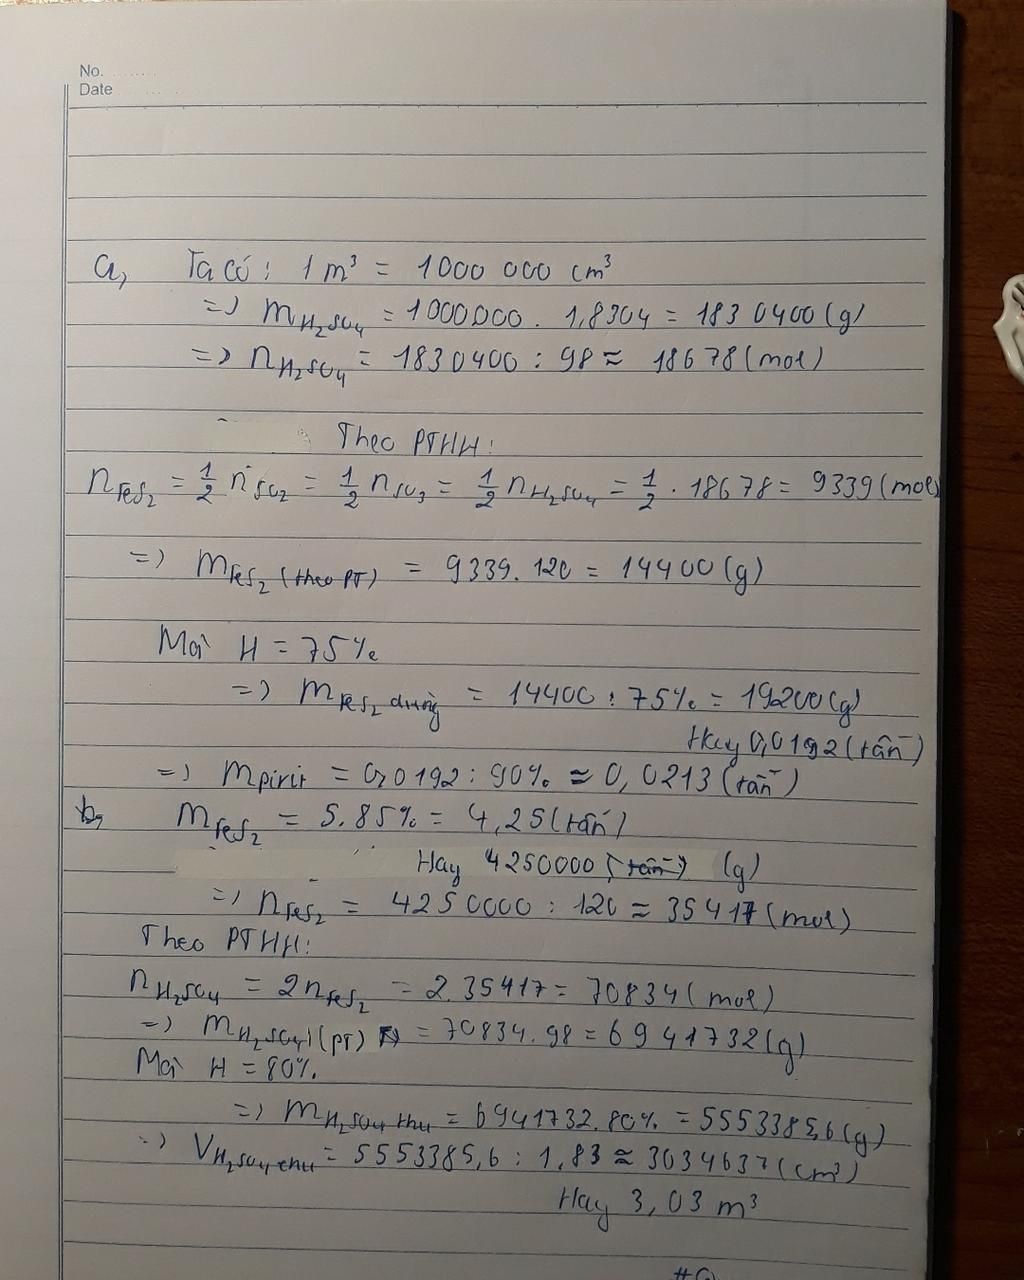 No.
Date
a, Ta có: 1 m³ = 1000 000 cm³
=) m H₂SO₄ = 1000000. 1,8304 = 1830400 (g)
=> n H₂SO₄ = 1830400 : 98 ≈ 18678 (mol)
Theo PTHH:
n FeS₂ = 1/2 n SO₂ = 1/2 n SO₃ = 1/2 n H₂SO₄ = 1/2 . 18678 = 9339 (mol)
=) m FeS₂ (theo PT) = 9339. 120 = 14400 (g)
Mà H = 75%
=) m FeS₂ dùng = 14400 : 75% = 19200 (g)
Hay 0,0192 (tấn)
=) m pirit = 0,0192 : 90% ≈ 0,0213 (tấn)
b, m FeS₂ = 5.85% = 4,25 (tấn)
Hay 4250000 (tấn) (g)
=) n FeS₂ = 4250000 : 120 ≈ 35417 (mol)
Theo PTHH:
n H₂SO₄ = 2n FeS₂ = 2.35417 = 70834 (mol)
=) m H₂SO₄ (PT) = 70834.98 = 6941732 (g)
Mà H = 80%.
=) m H₂SO₄ thu = 6941732.80% = 5553385,6 (g)
=) V H₂SO₄ thu = 5553385,6 : 1,83 ≈ 3034637 (cm³)
Hay 3,03 m³